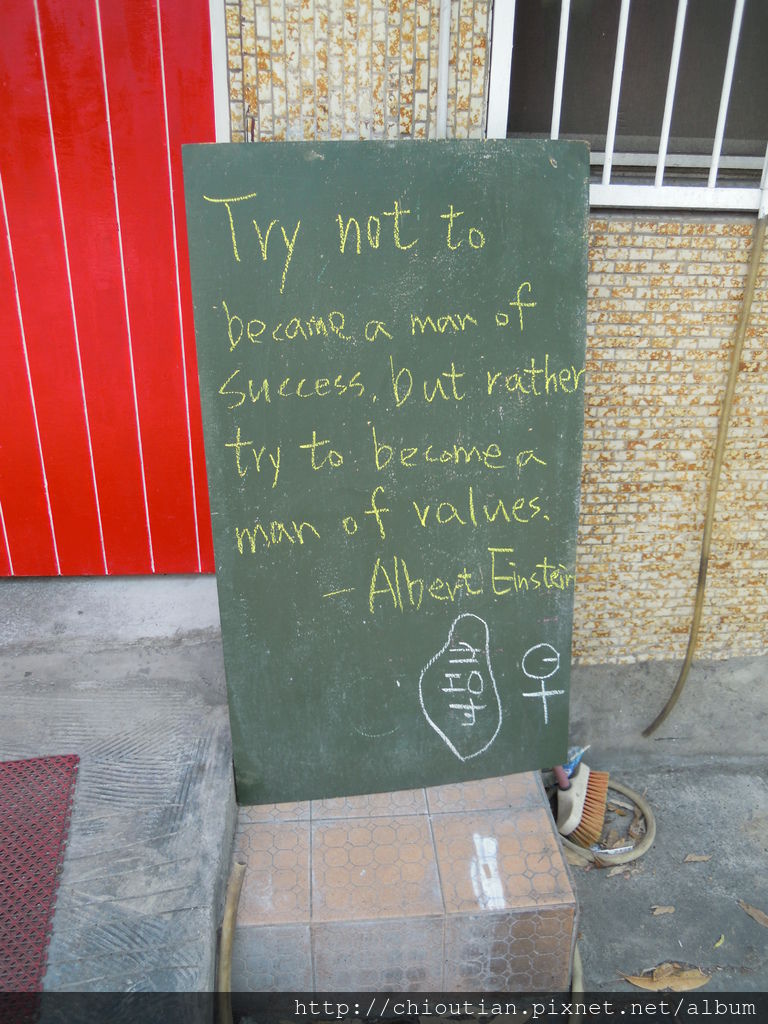 Try not to
became a man of
success, but rather
try to become a
man of values.
- Albert Einstein
http://chioutian.pixnet.net/album